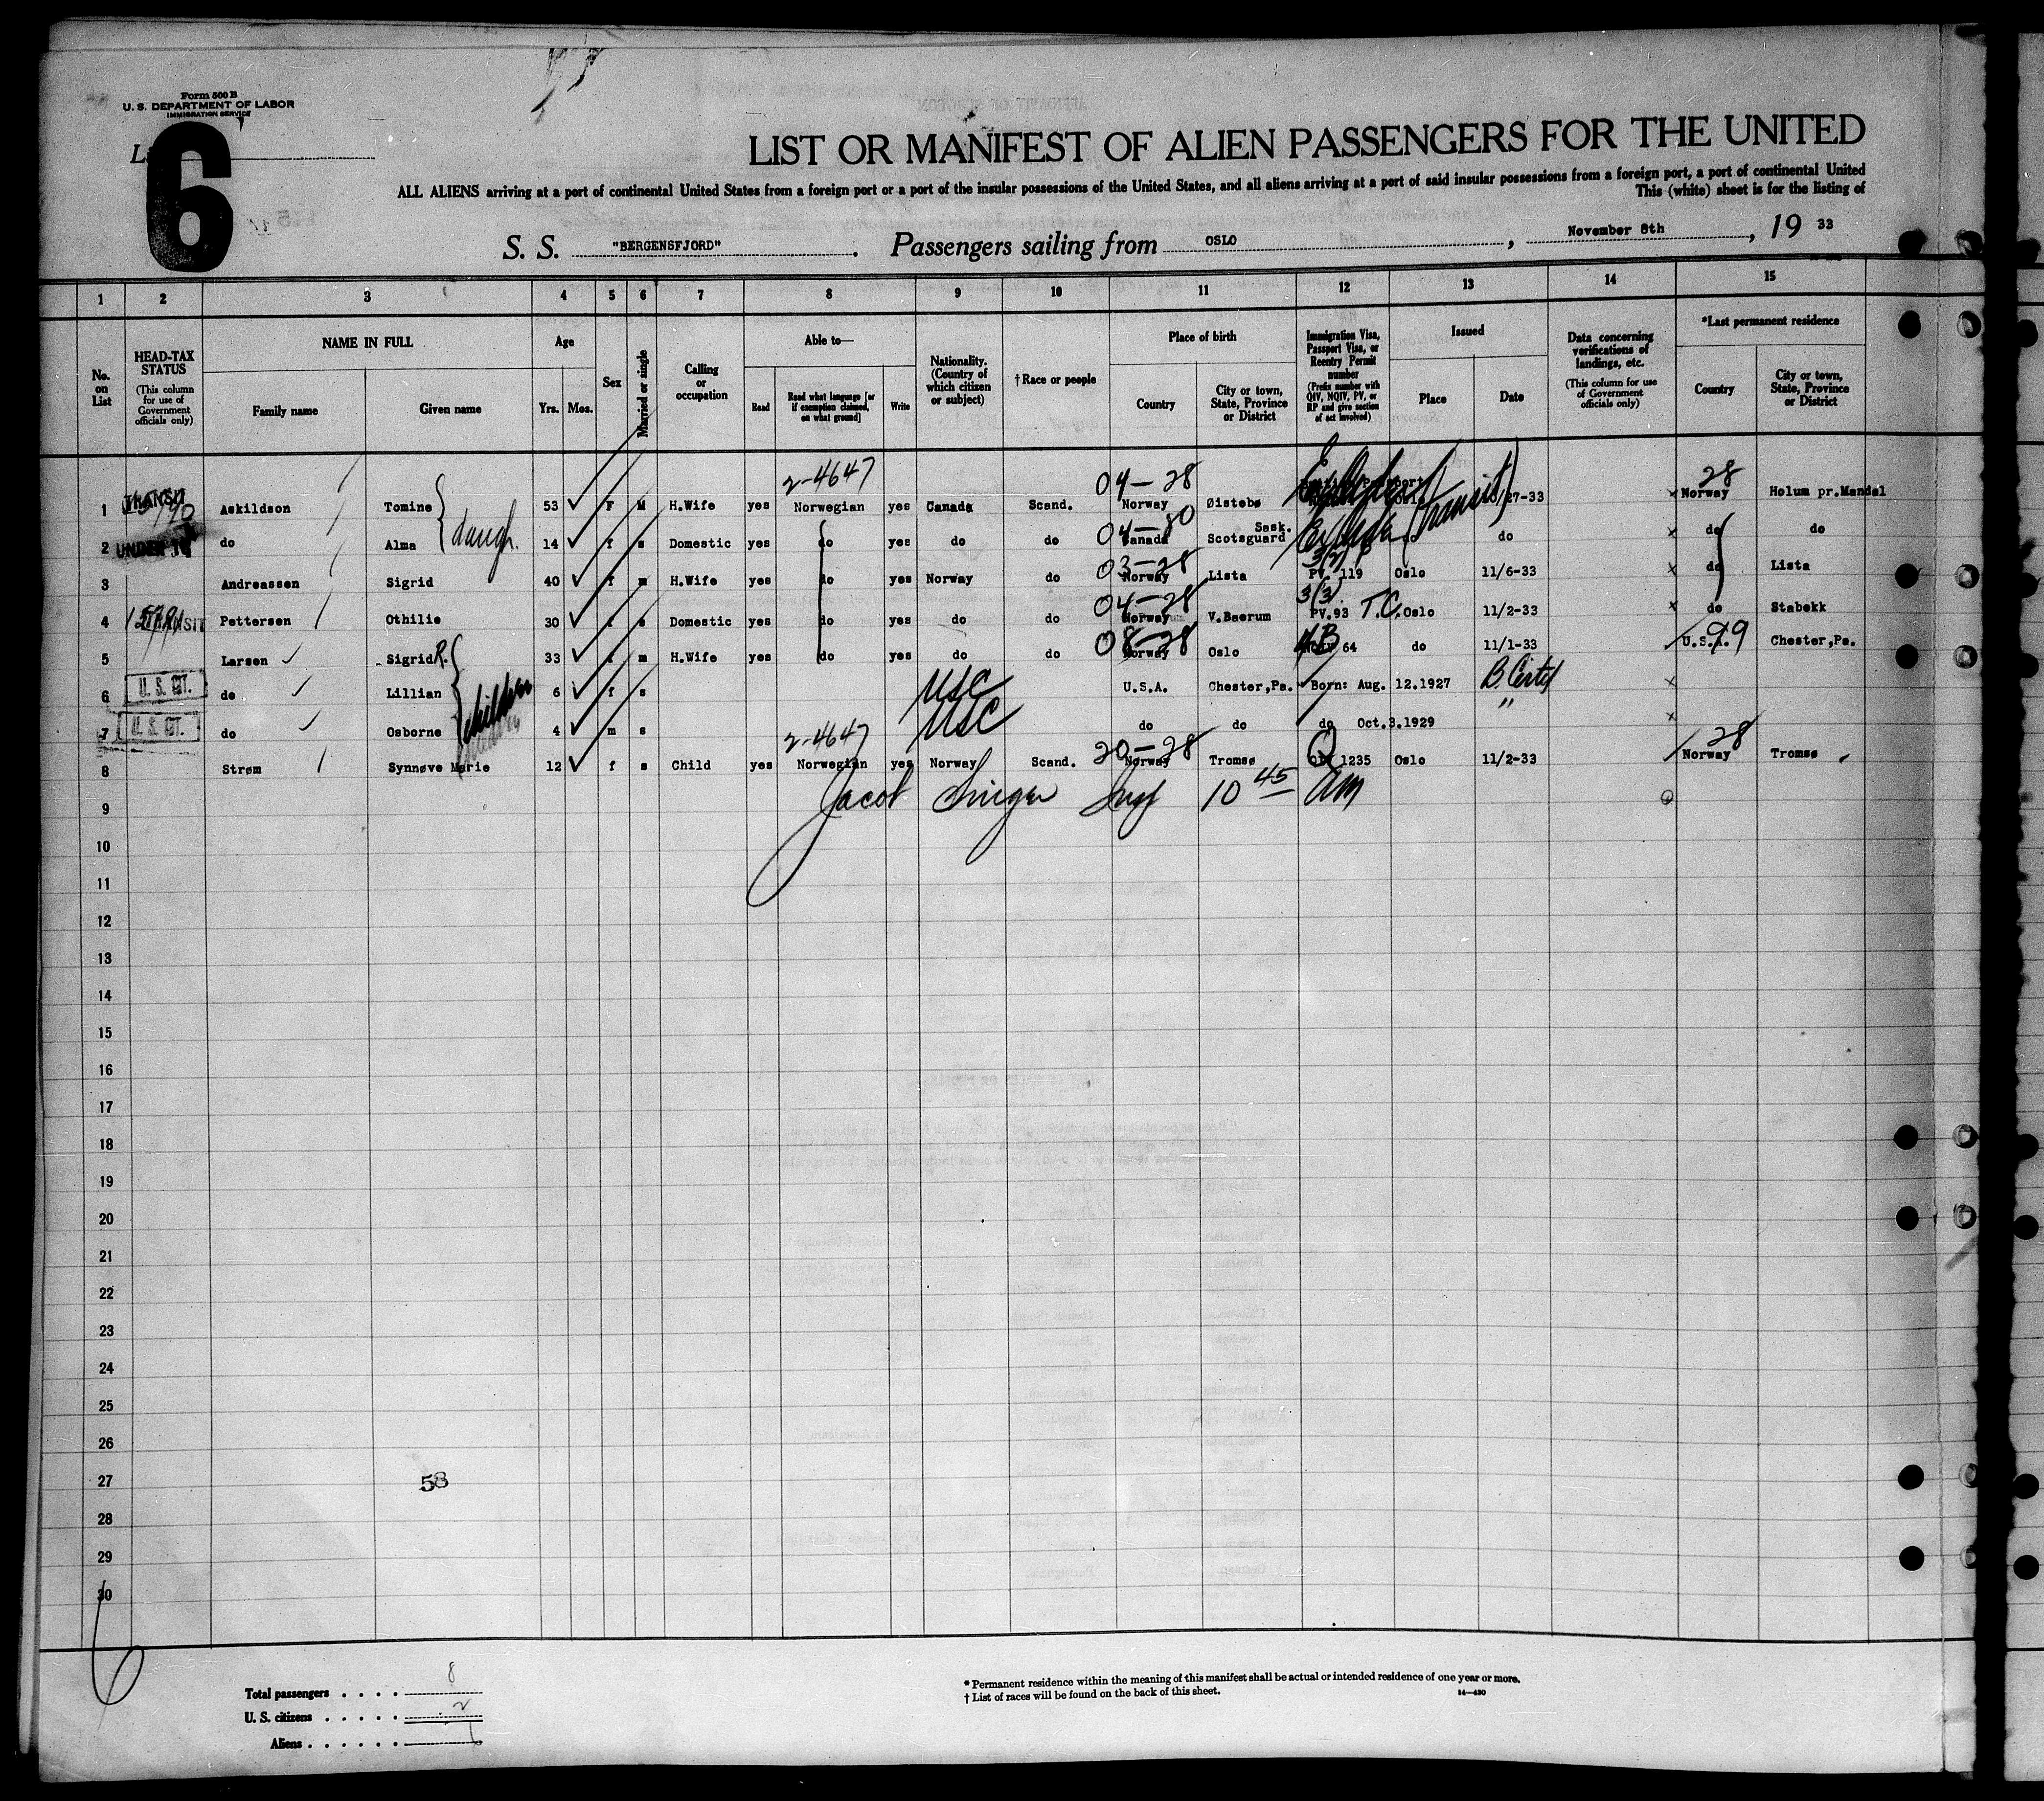 Form 500 B
U. S. DEPARTMENT OF LABOR
IMMIGRATION SERVICE
6
LIST OR MANIFEST OF ALIEN PASSENGERS FOR THE UNITED
ALL ALIENS arriving at a port of continental United States from a foreign port or a port of the insular possessions of the United States, and all aliens arriving at a port of said insular possessions from a foreign port, a port of continental United
This (white) sheet is for the listing of
S. S. "BERGENSFJORD". Passengers sailing from OSLO, November 8th, 19 33
1 2 3 4 5 6 7 8 9 10 11 12 13 14 15
No. on List
HEAD-TAX STATUS (This column for use of Government officials only)
NAME IN FULL
Family name Given name
Age
Yrs. Mos.
Sex
Married or single
Calling or occupation
Able to—
Read Read what language [or if exemption claimed, on what ground] Write
Nationality. (Country of which citizen or subject)
†Race or people
Place of birth
Country City or town, State, Province or District
Immigration Visa, Passport Visa, or Reentry Permit number (Prefix number with QIV, NQIV, PV, or RP and give section of act involved)
Issued
Place Date
Data concerning verifications of landings, etc. (This column for use of Government officials only)
*Last permanent residence
Country City or town, State, Province or District
2-4647 04-28 28
1 TRANSIT Askildson Tomine 53 F M H.Wife yes Norwegian yes Canada Scand. Norway Øistebø 27-33 Norway Holum pr.Mandal
daugh. 04-80 Sask. (transit)
2 UNDER 16 do Alma 14 f s Domestic yes do yes do do Canada Scotsguard do do do
03-28 3(2)
3 Andreassen Sigrid 40 f m H.Wife yes do yes Norway do Norway Lista PV. 119 Oslo 11/6-33 do Lista
04-28 3(3)
4 TRANSIT Pettersen Othilie 30 f s Domestic yes do yes do do Norway V.Baerum PV.93 T.C. Oslo 11/2-33 do Stabekk
08-28 99
5 Larsen Sigrid R. 33 f m H.Wife yes do yes do do Norway Oslo 64 do 11/1-33 U.S.A. Chester,Pa.
6 U. S. CIT. do Lillian children 6 f s USC U.S.A. Chester,Pa. Born: Aug. 12.1927 B. Certf
7 U. S. CIT. do Osborne 4 m s USC do do do Oct.3.1929 "
2-4647 20-28 Q 28
8 Strøm Synnøve Marie 12 f s Child yes Norwegian yes Norway Scand. Norway Tromsø QIV 1235 Oslo 11/2-33 Norway Tromsø
9 Jacob Singer Insp 10 45 Am
10
11
12
13
14
15
16
17
18
19
20
21
22
23
24
25
26
27 58
28
29
30
Total passengers . . . . 8
U. S. citizens . . . . . 2
Aliens . . . . . .
* Permanent residence within the meaning of this manifest shall be actual or intended residence of one year or more.
† List of races will be found on the back of this sheet.
14—430